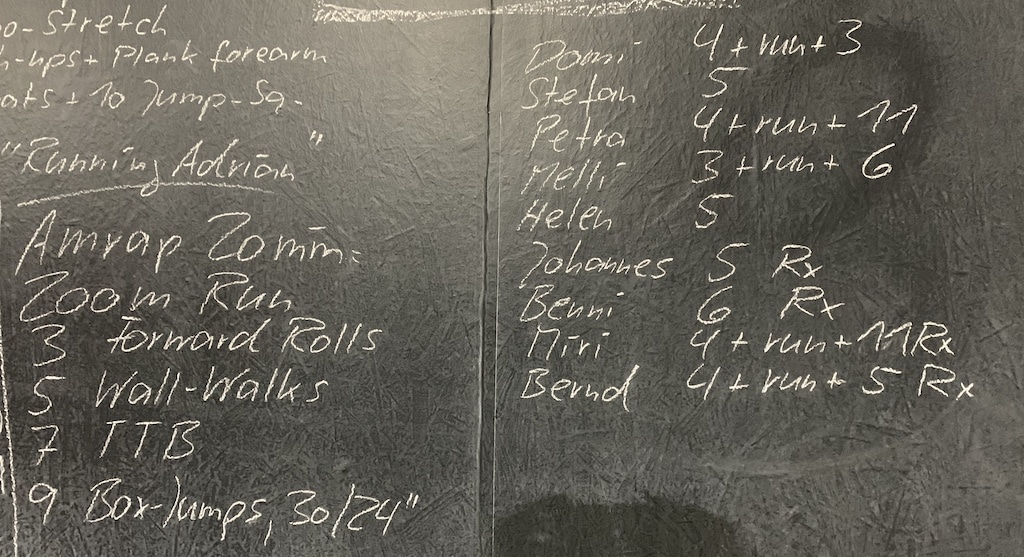 o-Stretch
h-ups + Plank forearm
ats + 10 Jump-Sq.
"Running Adrian"
Amrap 20min:
200m Run
3 Forward Rolls
5 Wall-Walks
7 TTB
9 Box-Jumps, 30/24"
Domi 4 + run + 3
Stefan 5
Petra 4 + run + 11
Melli 3 + run + 6
Helen 5
Johannes 5 Rx
Benni 6 Rx
Miri 4 + run + 11 Rx
Bernd 4 + run + 5 Rx